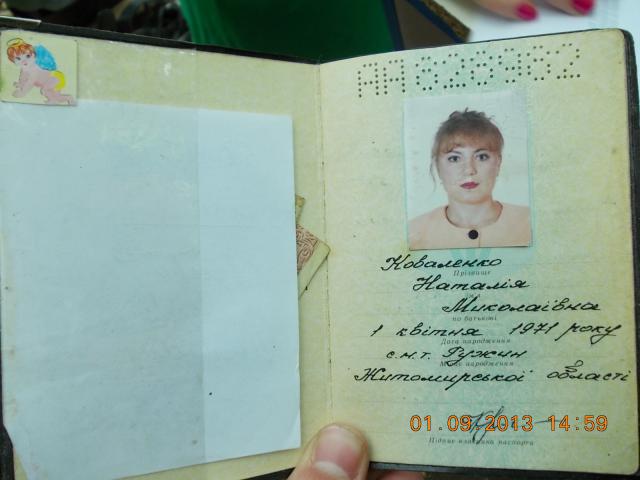 АА 826982
Коваленко
Прізвище
Наталія
Миколаївна
по батькові
1 квітня 1971 року
Дата народження
с.м.т. Ружин
Місце народження
Житомирської області
01.09.2013 14:59
Підпис власника паспорта